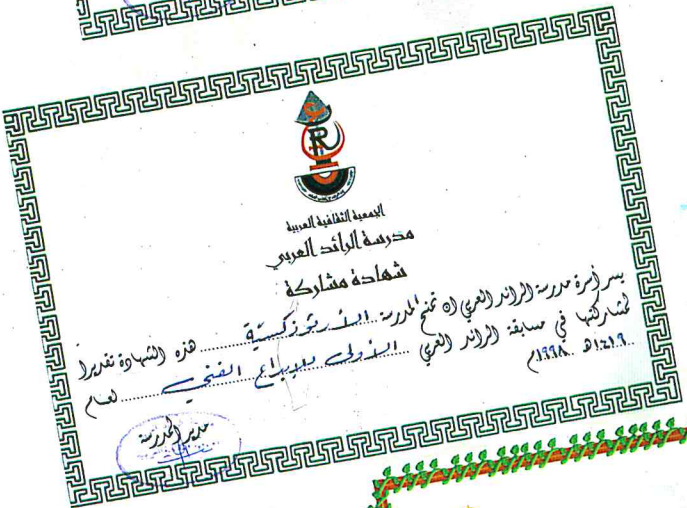 الجمعية الثقافية العربية
مدرسة الرائد العربي
شهادة مشاركة
يسر أسرة مدرسة الرائد العربي ان تمنح المدرسة الأرثوذكسية هذه الشهادة تقديراً
لمشاركتها في مسابقة الرائد العربي الأولى للإبداع الفني لعام
١٤١٩هـ ١٩٩٨م
مدير المدرسة